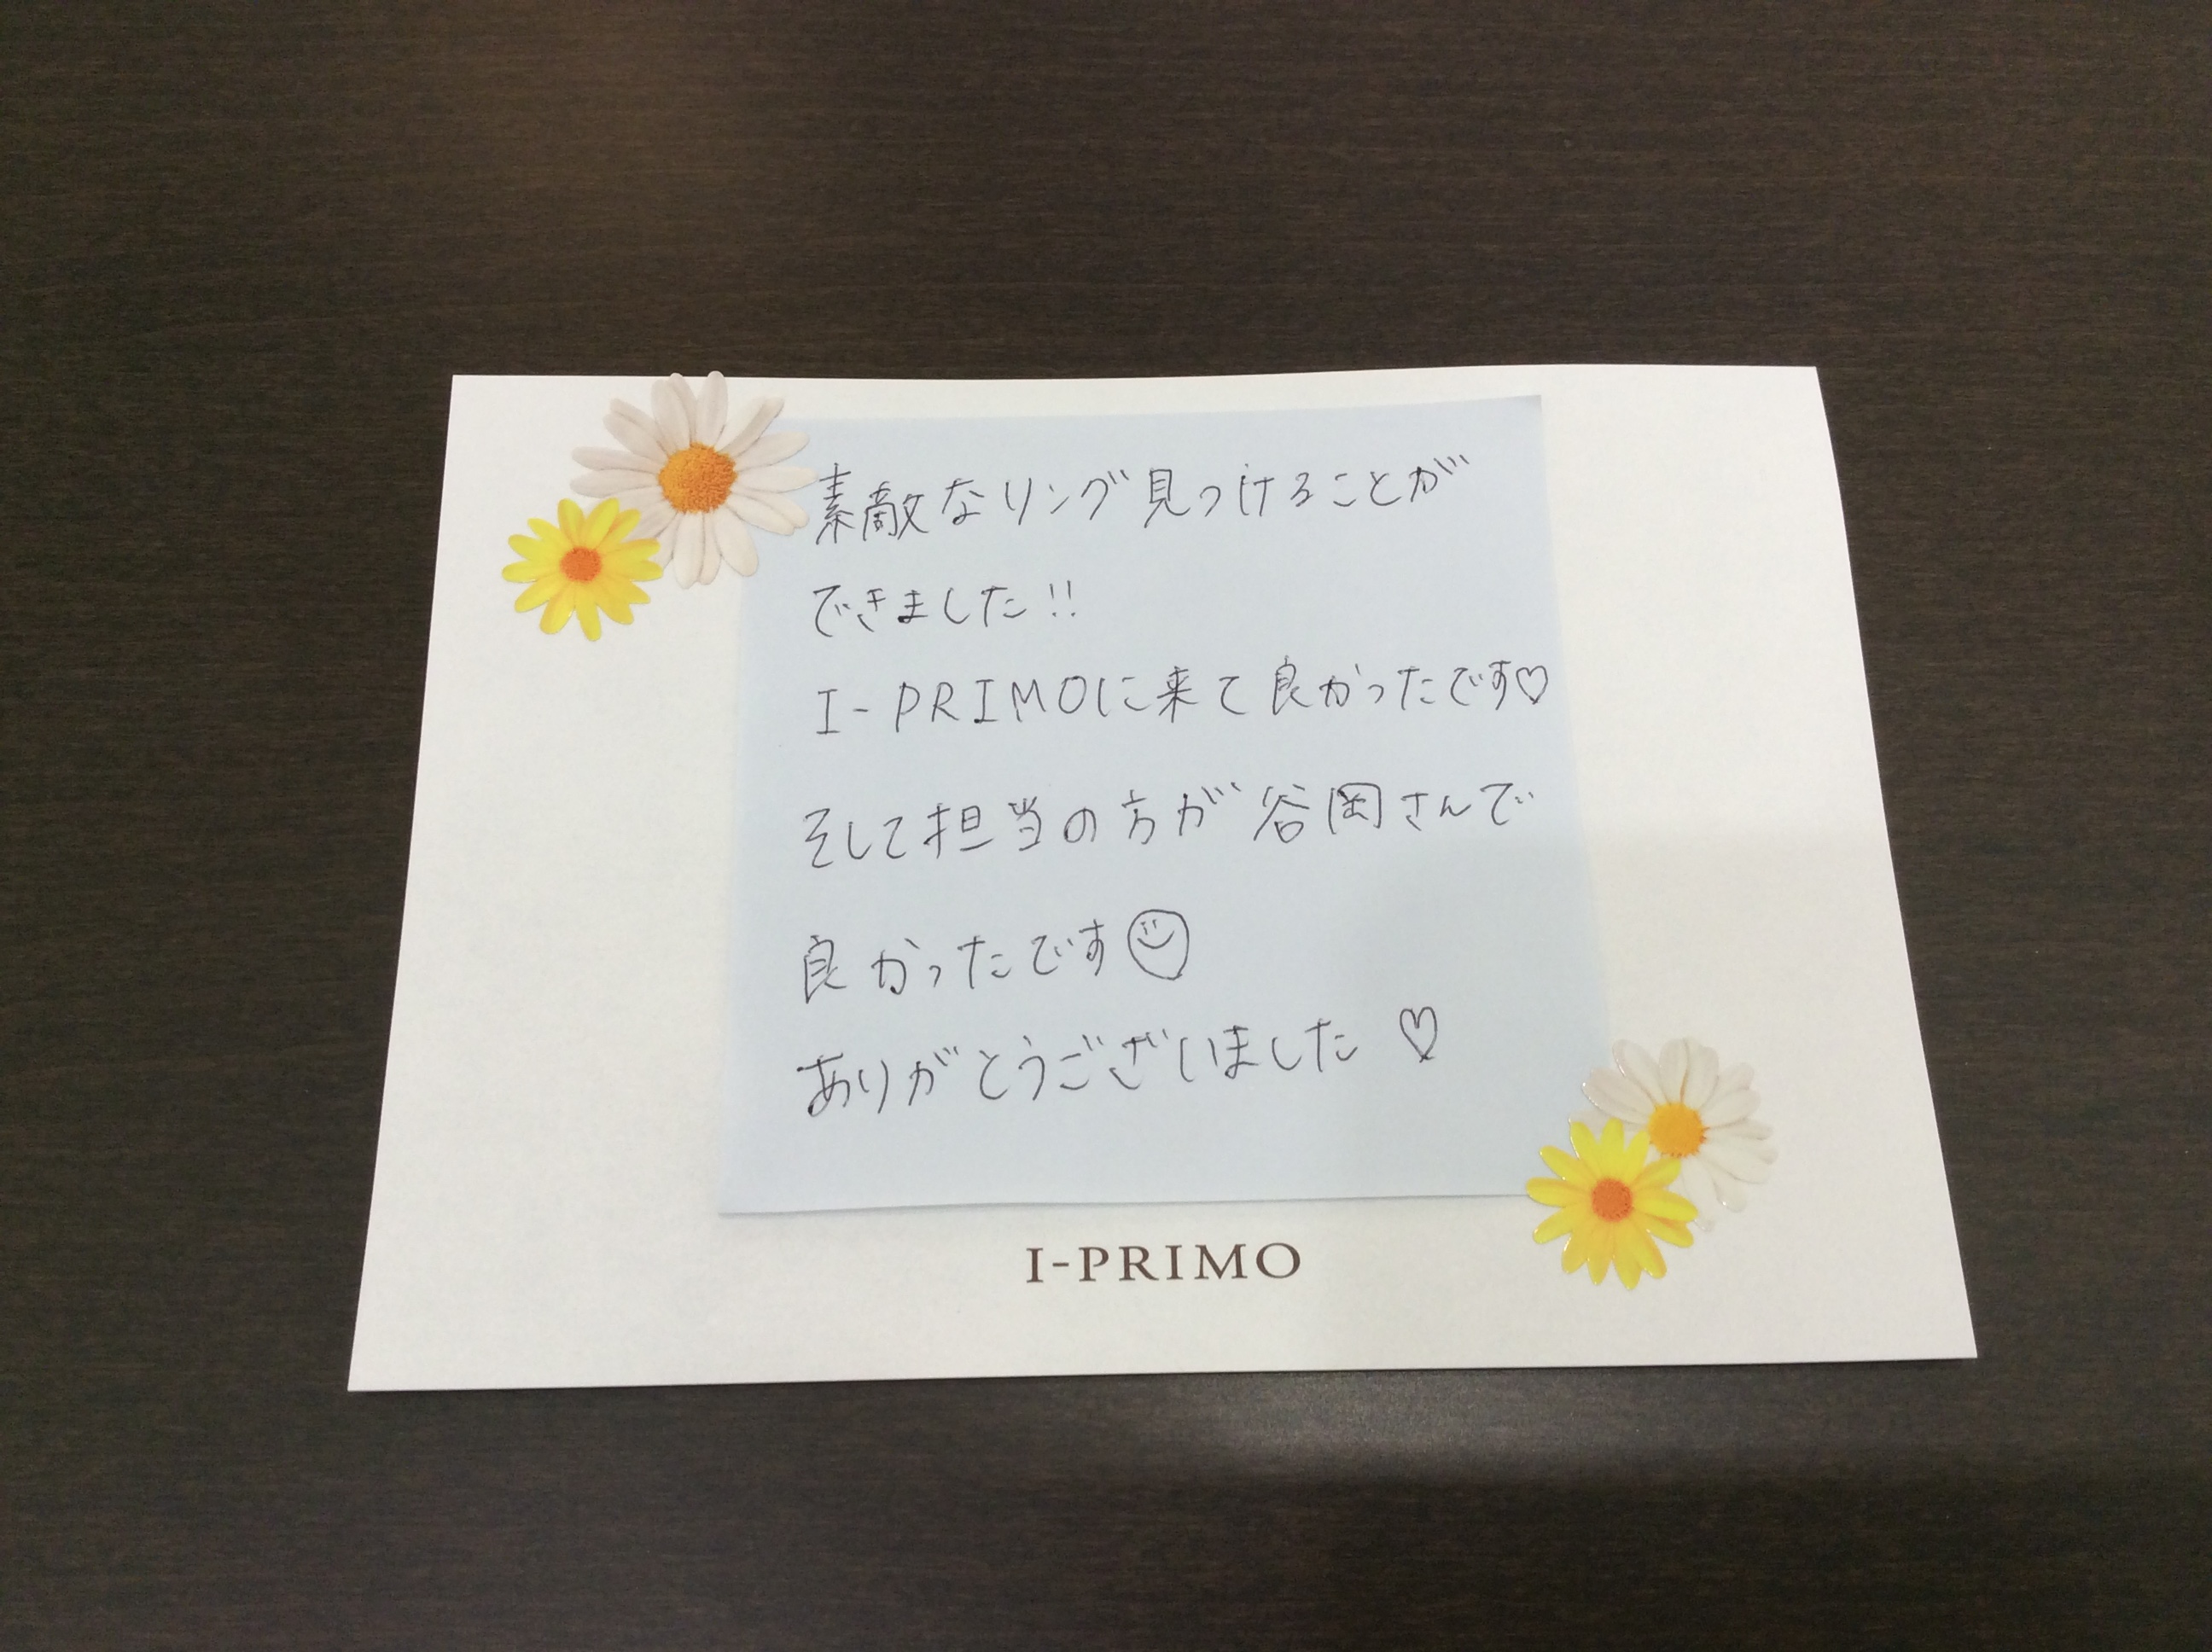 素敵なリング見つけることが
できました!!
I-PRIMOに来て良かったです♡
そして担当の方が谷岡さんで
良かったです☺
ありがとうございました ♡
I-PRIMO